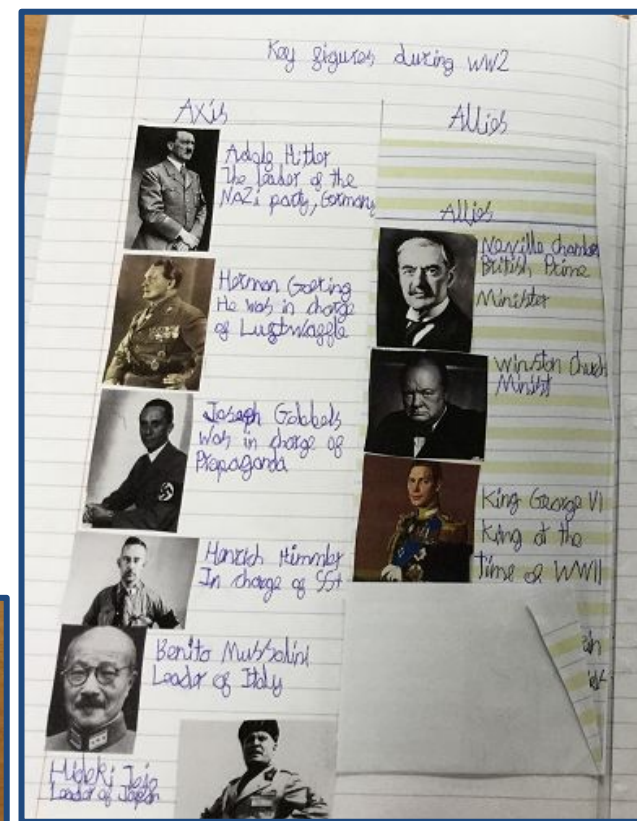 Key figures during WW2
Axis
Adolf Hitler
The leader of the
Nazi party, Germany
Herman Goering
He was in charge
of Luftwaffle
Joseph Gobbels
was in charge of
Propaganda
Henrich Himmler
In charge of
Benito Mussolini
Leader of Italy
Hideki Tojo
Leader of Japan
Allies
Allies
Neville chamber
British Prime
Minister
Winston Church
Minist
King George VI
King at the
time of WWII
ain